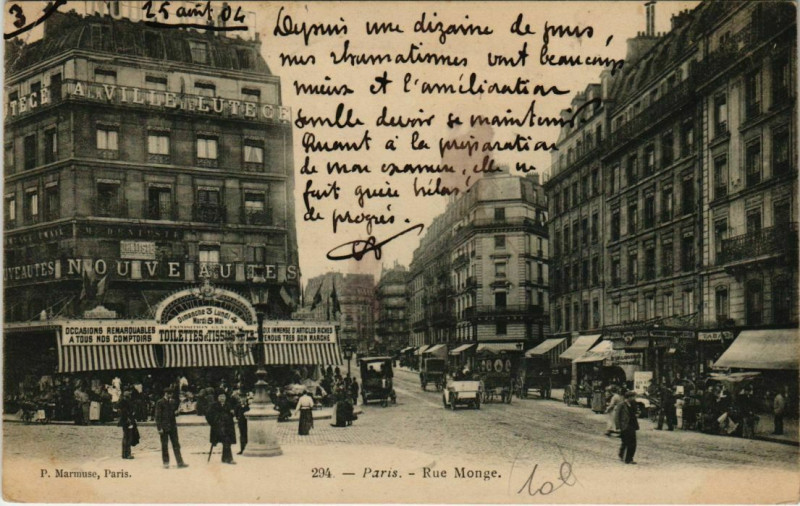 3
25 août 04
Depuis une dizaine de jours,
mes rhumatismes vont beaucoup
mieux et l'amélioration
semble devoir se maintenir.
Quant à la préparation
de mon examen, elle ne
fait guère hélas!
de progrès.
LUTÈCE A LA VILLE DE LUTÈCE
DENTISTE
NOUVEAUTES NOUVEAUTÉS
EXPOSITION GÉNÉRALE
OCCASIONS REMARQUABLES
A TOUS NOS COMPTOIRS
TOILETTES ET TISSUS
IMMENSE D'ARTICLES RICHES
VENDUS TRES BON MARCHÉ
TABAC
P. Marmuse, Paris.
294. — Paris. - Rue Monge.